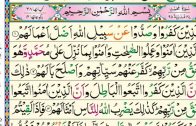 بِسْمِ اللّٰهِ الرَّحْمٰنِ الرَّحِيْمِ
اَلَّذِيْنَ كَفَرُوْا وَصَدُّوْا عَنْ سَبِيْلِ اللّٰهِ اَضَلَّ اَعْمَالَهُمْ
الَّذِيْنَ اٰمَنُوْا وَعَمِلُوا الصّٰلِحٰتِ وَاٰمَنُوْا بِمَا نُزِّلَ عَلٰى مُحَمَّدٍ وَّهُوَ
مِنْ رَّبِّهِمْ كَفَّرَ عَنْهُمْ سَيِّاٰتِهِمْ وَاَصْلَحَ بَالَهُمْ ذٰلِكَ بِاَنَّ
الَّذِيْنَ كَفَرُوا اتَّبَعُوا الْبَاطِلَ وَاَنَّ الَّذِيْنَ اٰمَنُوا اتَّبَعُوا
مِنْ رَّبِّهِمْ كَذٰلِكَ يَضْرِبُ اللّٰهُ لِلنَّاسِ اَمْثَالَهُمْ فَاِذَا لَقِيْتُمُ